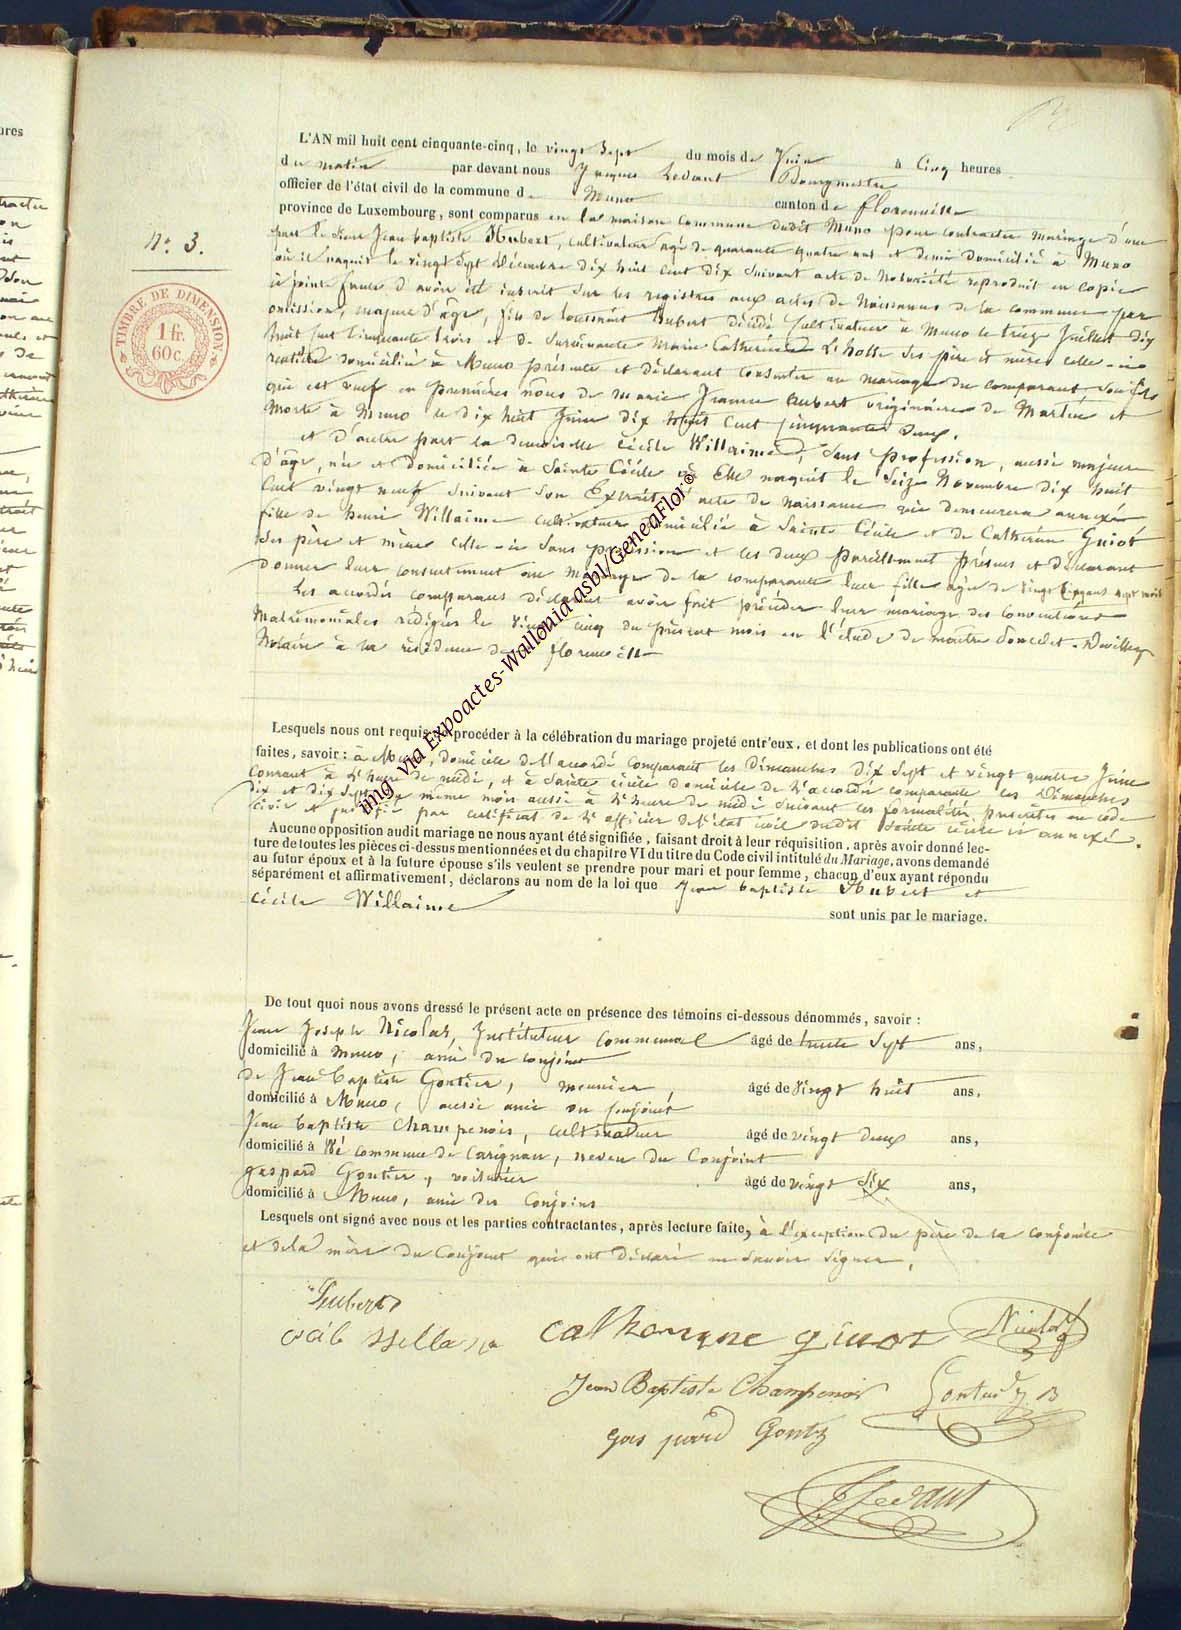 N.° 3.
TIMBRE DE DIMENSION
1 fr.
60 c.
L'AN mil huit cent cinquante-cinq, le vingt Sept du mois de Juin à Cinq heures
du matin par devant nous Jacques Ledant Bourgmestre
officier de l'état civil de la commune de Muno canton de florenville
province de Luxembourg, sont comparus en la maison Commune dudit Muno pour contracter mariage d'une
part le sieur Jean baptiste Hubert, cultivateur agé de quarante quatre ans et demi domicilié à Muno
où il naquit le vingt Sept décembre dix huit Cent dix suivant acte de Notoriété reproduit en copie
ci jointe faute d'avoir été inscrit sur les registres aux actes de Naissances de la commune par
omission, majeur d'âge, fils de toussaint hubert décédé Cultivateur à Muno le treize Juillet dix
huit Cent Cinquante trois et de Survivante Marie Catherine L'hotte Ses père et mère celle-ci
rentière domiciliée à Muno présente et déclarant Consentir au mariage du comparant Son fils
qui est veuf en premières nôces de Marie Jeanne hubert originaire de Martué et
morte à Muno le dix huit Juin dix huit Cent Cinquante deux.
et d'autre part la demoiselle Cécile Willaime, Sans profession, aussi majeure
d'âge, née et domiciliée à Sainte Cécile où Elle naquit le Seize Novembre dix huit
Cent vingt neuf suivant Son Extrait d'acte de naissance qui demeurera annexé
fille de henri Willaime cultivateur domicilié à Sainte Cécile et de Catherine Guiot
Ses père et mère celle-ci Sans profession et les deux pareillement présens et déclarant
donner leur consentement au mariage de la comparante leur fille agée de vingt Cinq ans sept mois
Les accordés comparans déclarent avoir fait précéder leur mariage des conventions
Matrimoniales rédigées le vingt cinq du présent mois en l'étude de maître
Notaire à la résidence de florenville
Lesquels nous ont requis de procéder à la célébration du mariage projeté entr'eux, et dont les publications ont été
faites, savoir : à Muno, domicile de l'accordé comparant les dimanches dix Sept et vingt quatre Juin
Courant à l'heure de midi, et à Sainte Cécile domicile de l'accordée comparante les Dimanches
dix et dix Sept de même mois aussi à l'heure de midi Suivant les formalités prescrites au code
Civil et justifié par certificat de l'officier de l'état civil dudit Sainte Cécile ci annexé.
Aucune opposition audit mariage ne nous ayant été signifiée, faisant droit à leur réquisition, après avoir donné lec-
ture de toutes les pièces ci-dessus mentionnées et du chapitre VI du titre du Code civil intitulé du Mariage, avons demandé
au futur époux et à la future épouse s'ils veulent se prendre pour mari et pour femme, chacun d'eux ayant répondu
séparément et affirmativement, déclarons au nom de la loi que Jean baptiste Hubert et
Cécile Willaime
sont unis par le mariage.
De tout quoi nous avons dressé le présent acte en présence des témoins ci-dessous dénommés, savoir :
Jean Joseph Nicolas, Instituteur Communal âgé de trente Sept ans,
domicilié à Muno, ami du conjoint
de Jean baptiste Gontier, meunier, âgé de vingt huit ans,
domicilié à Muno, aussi ami du Conjoint
Jean baptiste Champenois, cultivateur âgé de vingt deux ans,
domicilié à Wé commune de Carignan, neveu du Conjoint
gaspard Gontier, voiturier âgé de vingt Six ans,
domicilié à Muno, ami des Conjoins
Lesquels ont signé avec nous et les parties contractantes, après lecture faite, à l'exception du père de la conjointe
et de la mère du Conjoint qui ont déclaré ne Savoir Signer.
Hubert
catherine guiot
Nicolas
Jean Baptiste Champenois
Gontier J B
gaspard
J Ledant
img via Expoactes-Wallonia asbl/GeneaFlor©